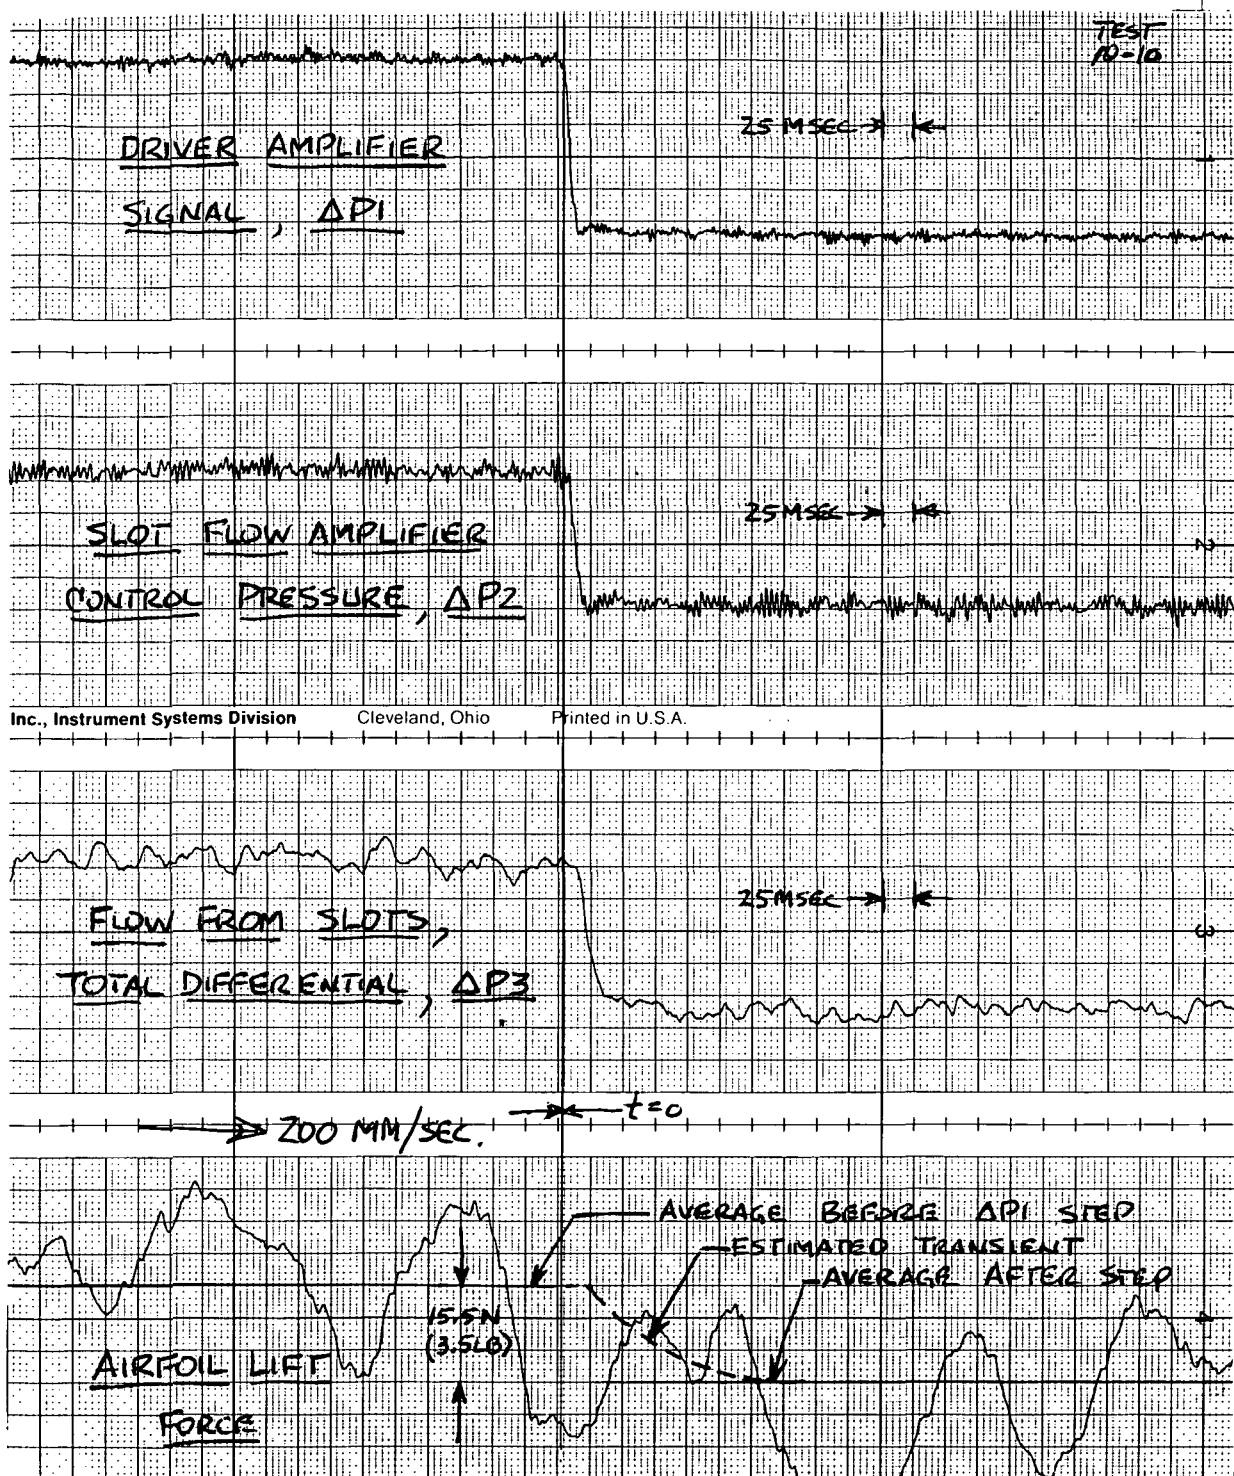 TEST
10-10
25 MSEC
1
DRIVER AMPLIFIER
SIGNAL, ΔP1
25 MSEC
2
SLOT FLOW AMPLIFIER
CONTROL PRESSURE, ΔP2
Inc., Instrument Systems Division Cleveland, Ohio Printed in U.S.A.
25 MSEC
3
FLOW FROM SLOTS,
TOTAL DIFFERENTIAL, ΔP3
t=0
200 MM/SEC.
AVERAGE BEFORE ΔP1 STEP
ESTIMATED TRANSIENT
AVERAGE AFTER STEP
15.5N
(3.5LB)
4
AIRFOIL LIFT
FORCE